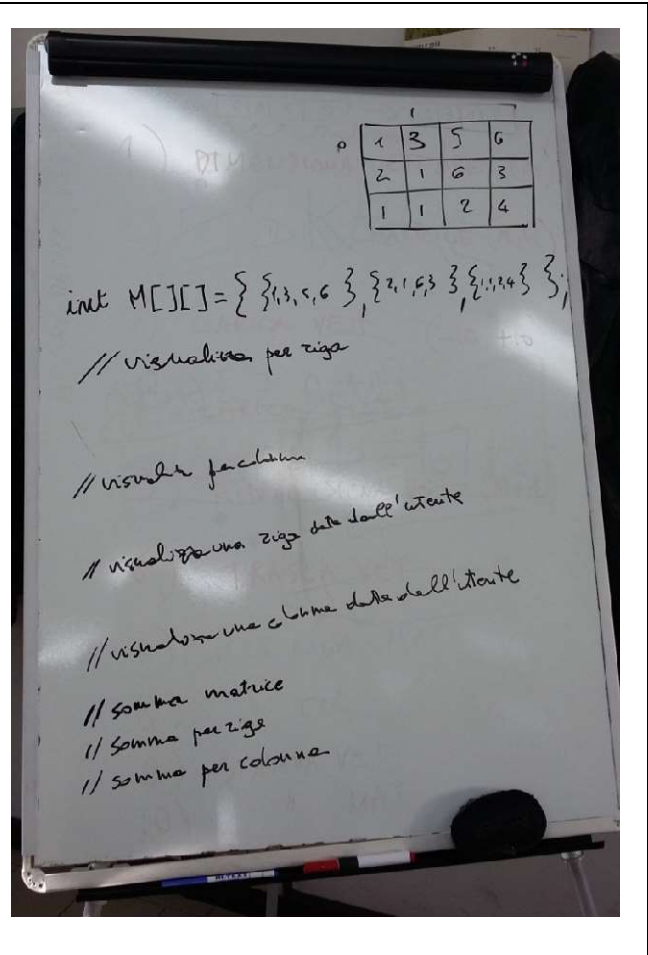 1 3 5 6
2 1 6 3
1 1 2 4
int M[][]={ {1,3,5,6 },{2,1,6,3 },{1,1,2,4} };
// visualizza per riga
// visualizza per colonna
// visualizza una riga data dall'utente
// visualizza una colonna data dall'utente
// somma matrice
// somma per riga
// somma per colonna